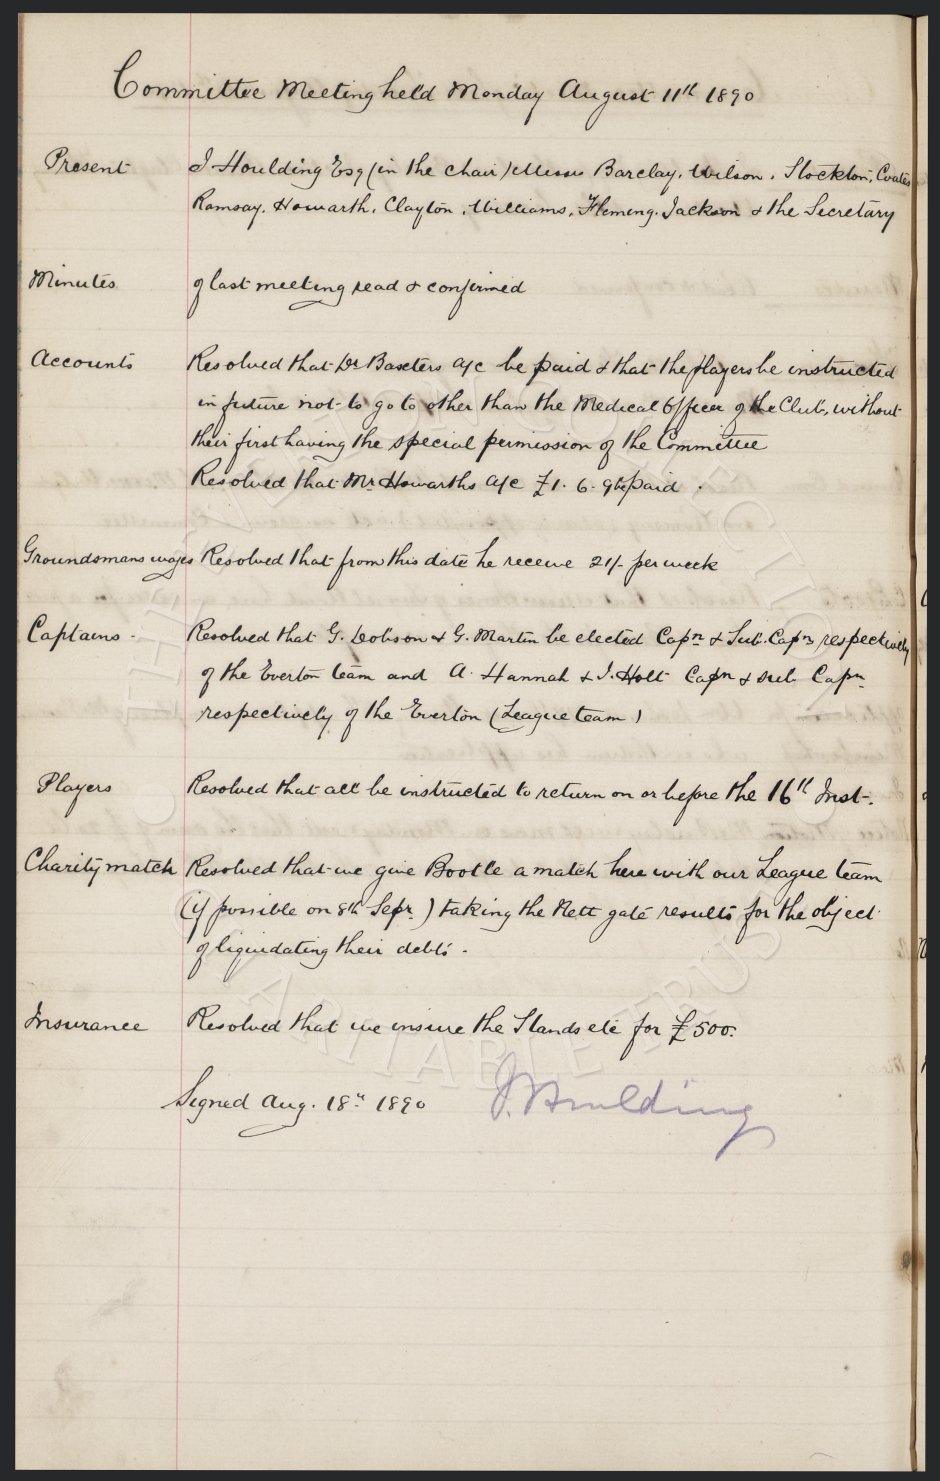 Committee Meeting held Monday August 11th 1890
Present J Houlding Esq (in the chair) Messrs Barclay, Wilson, Stockton, Coates
Ramsay, Howarth, Clayton, Williams, Fleming, Jackson & the Secretary
Minutes of last meeting read & confirmed
Accounts Resolved that Dr Baxters a/c be paid & that the players be instructed
in future not to go to other than the Medical Officer of the Club, without
their first having the special permission of the Committee
Resolved that Mr Howarths a/c £1. 6. 9 be paid.
Groundsmans wages Resolved that from this date he receive 21/- per week
Captains - Resolved that G. Dobson & G. Martin be elected Capn & Sub. Capn respectively
of the Everton team and A. Hannah & J. Holt Capn & sub Capn
respectively of the Everton (League team)
Players Resolved that all be instructed to return on or before the 16th Inst.
Charity match Resolved that we give Bootle a match here with our League team
(if possible on 8th Sepr.) taking the Nett gate results for the object
of liquidating their debts.
Insurance Resolved that we insure the Stands etc for £500.
Signed Aug. 18th 1890 J. Houlding
THE EVERTON COLLECTION
CHARITABLE TRUST